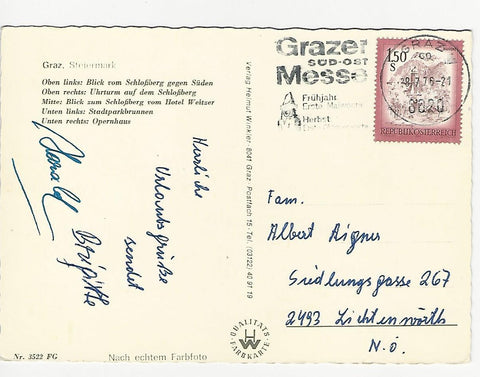 Graz, Steiermark
Oben links: Blick vom Schloßberg gegen Süden
Oben rechts: Uhrturm auf dem Schloßberg
Mitte: Blick zum Schloßberg vom Hotel Weitzer
Unten links: Stadtparkbrunnen
Unten rechts: Opernhaus
Herzliche
Urlaubsgrüße
sendet
Harald
Brigitte
Nr. 3522 FG
Nach echtem Farbfoto
Verlag Helmut Winkler, 8041 Graz, Postfach 15, Tel. (03122) 40 91 19
QUALITÄTS
FARBKARTE
Grazer
SÜD-OST
Messe
Frühjahr
Erste Maiwoche
Herbst
GRAZ
8020
1.50
S
REPUBLIK ÖSTERREICH
Fam.
Albert Aigner
Siedlungsgasse 267
2493 Lichtenwörth
N.Ö.